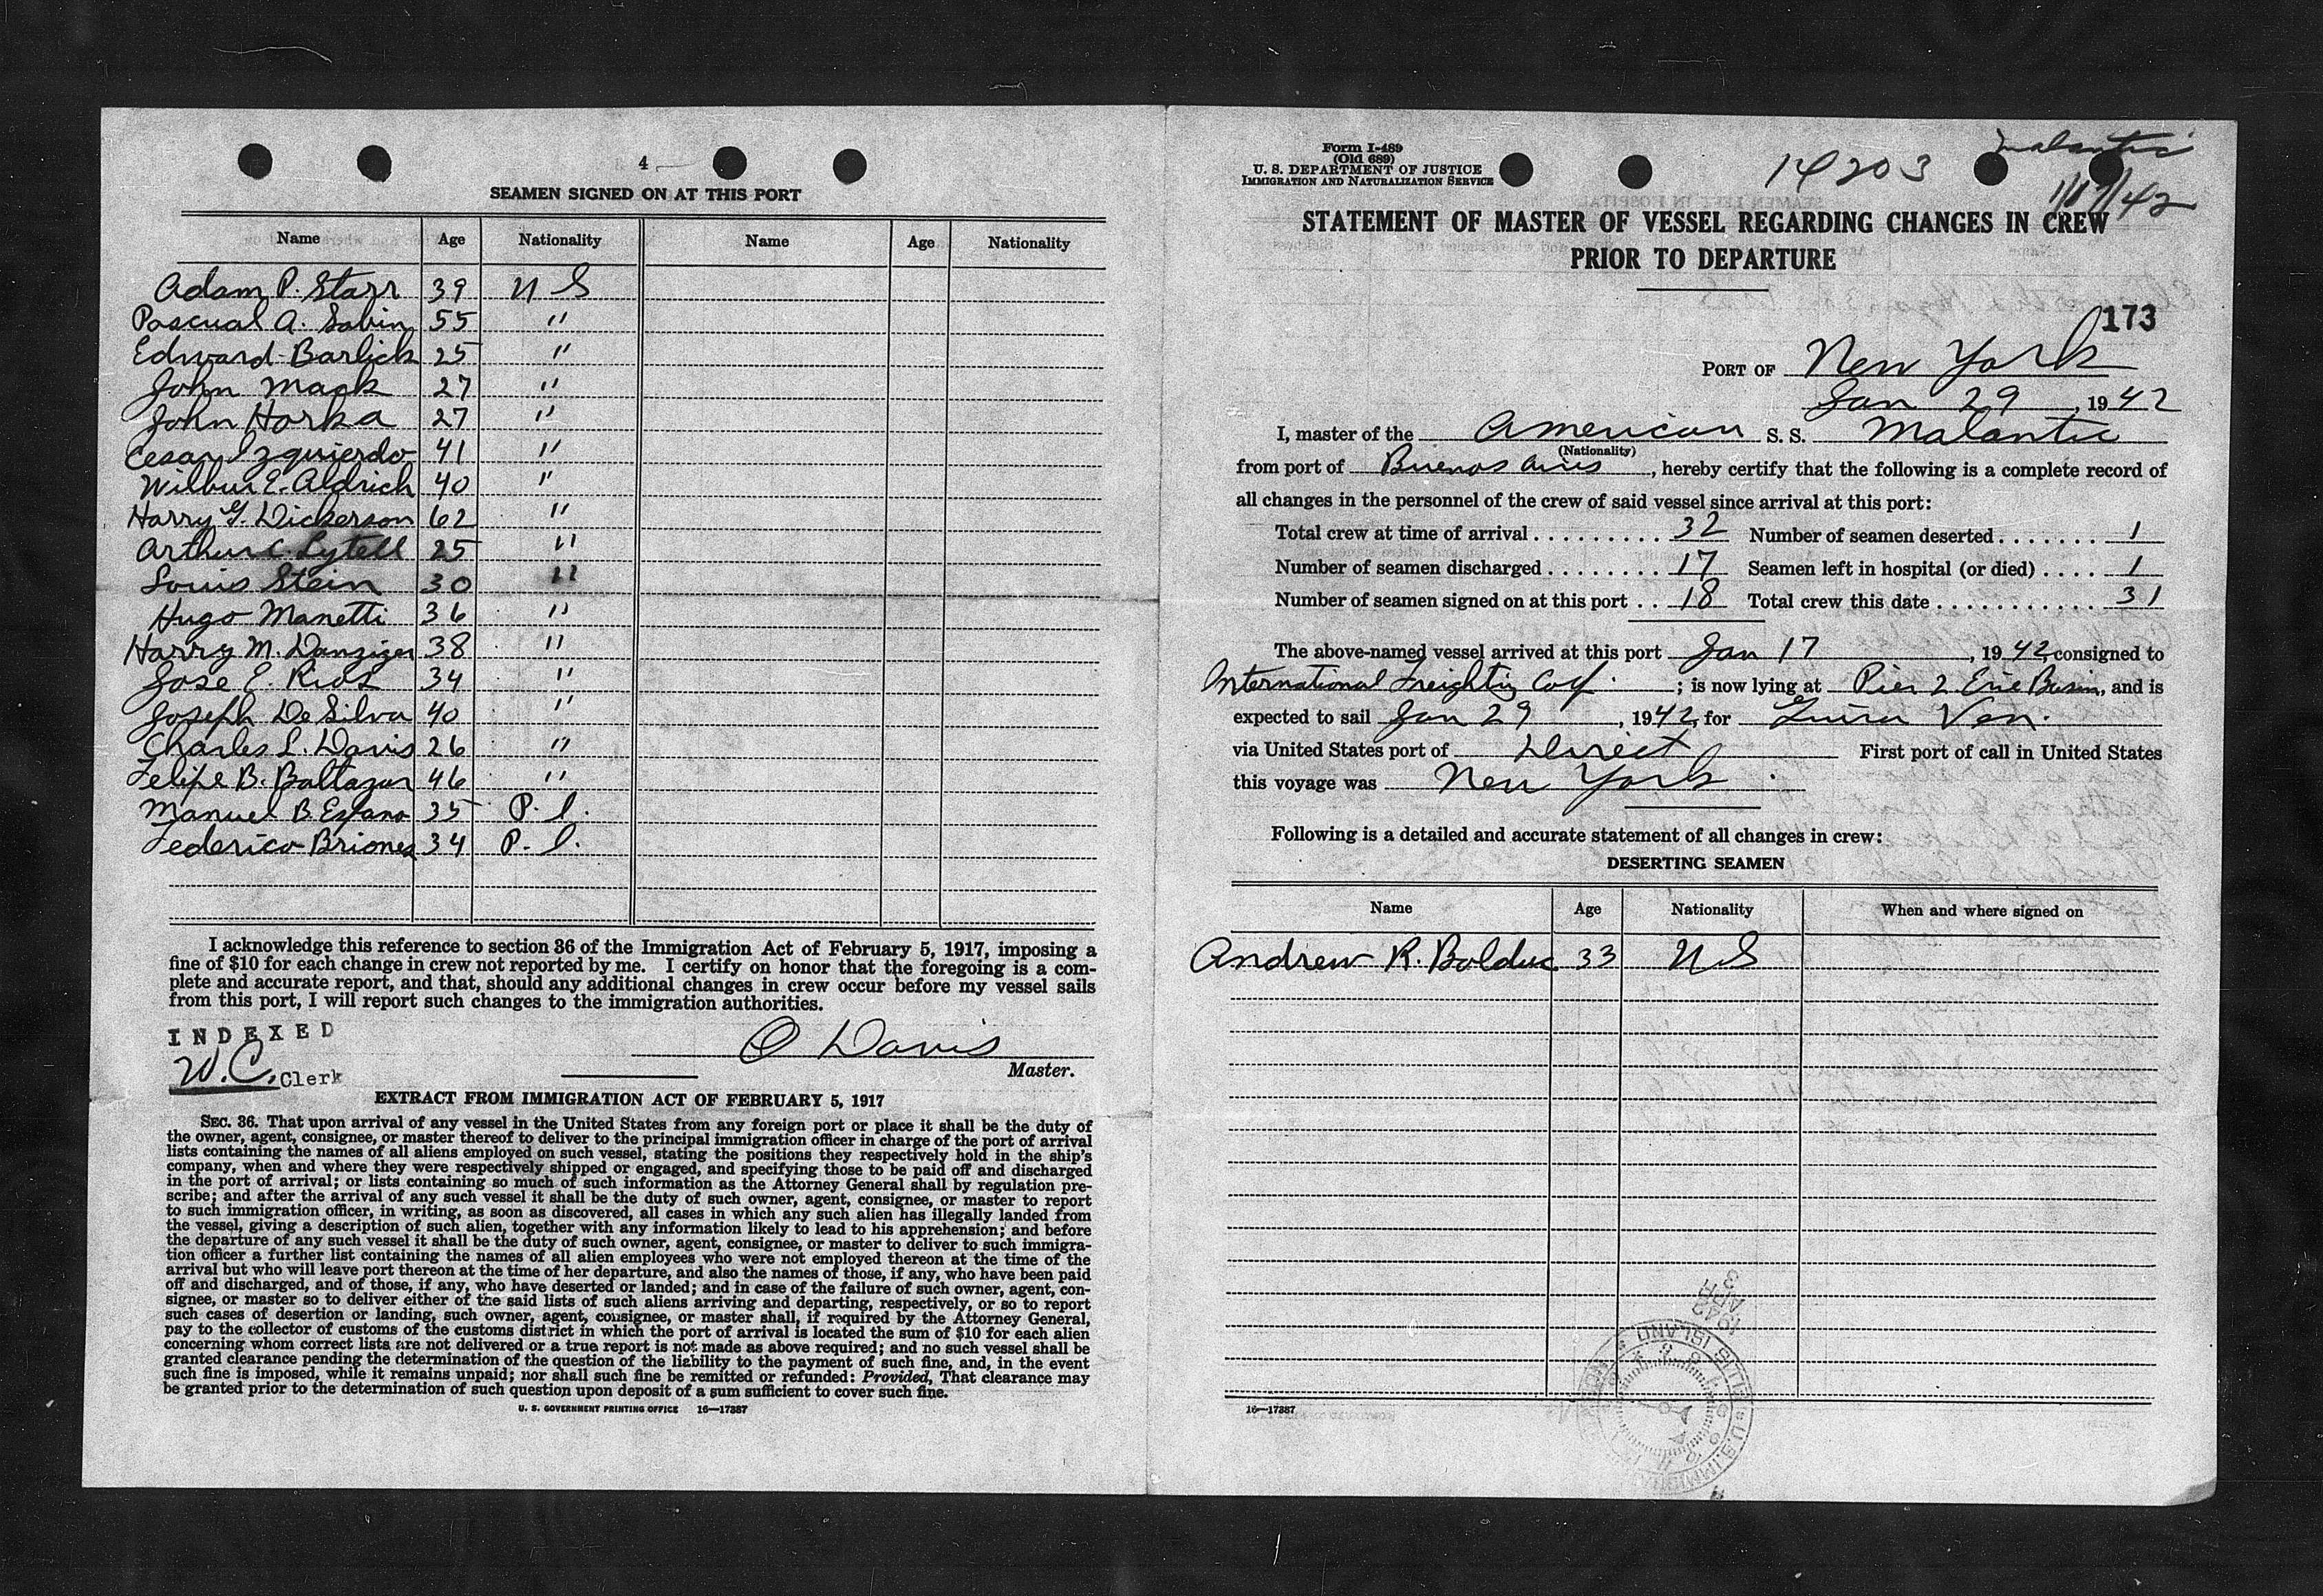 4
SEAMEN SIGNED ON AT THIS PORT
Name Age Nationality Name Age Nationality
Adam P. Starr 39 U S
Pascual A. Sabin 55 "
Edward Barlick 25 "
John Mack 27 "
John Horka 27 "
Cesar Izquierdo 41 "
Wilbur E. Aldrich 40 "
Harry G. Dickerson 62 "
Arthur C. Lytell 25 "
Louis Stein 30 "
Hugo Manetti 36 "
Harry M. Danziger 38 "
Jose E. Rios 34 "
Joseph De Silva 40 "
Charles L. Davis 26 "
Felipe B. Baltazar 46 "
Manuel B. Espano 35 P. I.
Federico Briones 34 P. I.
I acknowledge this reference to section 36 of the Immigration Act of February 5, 1917, imposing a
fine of $10 for each change in crew not reported by me. I certify on honor that the foregoing is a com-
plete and accurate report, and that, should any additional changes in crew occur before my vessel sails
from this port, I will report such changes to the immigration authorities.
INDEXED
W.C. Clerk
O Davis
Master.
EXTRACT FROM IMMIGRATION ACT OF FEBRUARY 5, 1917
SEC. 36. That upon arrival of any vessel in the United States from any foreign port or place it shall be the duty of
the owner, agent, consignee, or master thereof to deliver to the principal immigration officer in charge of the port of arrival
lists containing the names of all aliens employed on such vessel, stating the positions they respectively hold in the ship's
company, when and where they were respectively shipped or engaged, and specifying those to be paid off and discharged
in the port of arrival; or lists containing so much of such information as the Attorney General shall by regulation pre-
scribe; and after the arrival of any such vessel it shall be the duty of such owner, agent, consignee, or master to report
to such immigration officer, in writing, as soon as discovered, all cases in which any such alien has illegally landed from
the vessel, giving a description of such alien, together with any information likely to lead to his apprehension; and before
the departure of any such vessel it shall be the duty of such owner, agent, consignee, or master to deliver to such immigra-
tion officer a further list containing the names of all alien employees who were not employed thereon at the time of the
arrival but who will leave port thereon at the time of her departure, and also the names of those, if any, who have been paid
off and discharged, and of those, if any, who have deserted or landed; and in case of the failure of such owner, agent, con-
signee, or master so to deliver either of the said lists of such aliens arriving and departing, respectively, or so to report
such cases of desertion or landing, such owner, agent, consignee, or master shall, if required by the Attorney General,
pay to the collector of customs of the customs district in which the port of arrival is located the sum of $10 for each alien
concerning whom correct lists are not delivered or a true report is not made as above required; and no such vessel shall be
granted clearance pending the determination of the question of the liability to the payment of such fine, and, in the event
such fine is imposed, while it remains unpaid; nor shall such fine be remitted or refunded: Provided, That clearance may
be granted prior to the determination of such question upon deposit of a sum sufficient to cover such fine.
U. S. GOVERNMENT PRINTING OFFICE 16—17387
Form I-489
(Old 689)
U. S. DEPARTMENT OF JUSTICE
IMMIGRATION AND NATURALIZATION SERVICE
14203
Malantic
1/17/42
STATEMENT OF MASTER OF VESSEL REGARDING CHANGES IN CREW
PRIOR TO DEPARTURE
173
PORT OF New York
Jan 29, 1942
I, master of the American S. S. Malantic
(Nationality)
from port of Buenos Aires, hereby certify that the following is a complete record of
all changes in the personnel of the crew of said vessel since arrival at this port:
Total crew at time of arrival . . . . . . . . . 32 Number of seamen deserted . . . . . . . 1
Number of seamen discharged . . . . . . . . 17 Seamen left in hospital (or died) . . . . 1
Number of seamen signed on at this port . . 18 Total crew this date . . . . . . . . . . . . 31
The above-named vessel arrived at this port Jan 17, 1942, consigned to
International Freighting Corp.; is now lying at Pier 2 Erie Basin, and is
expected to sail Jan 29, 1942, for Guira Ven.
via United States port of Direct First port of call in United States
this voyage was New York.
Following is a detailed and accurate statement of all changes in crew:
DESERTING SEAMEN
Name Age Nationality When and where signed on
Andrew R. Bolduc 33 U S
1942
APR
3
ELLIS ISLAND
16—17387